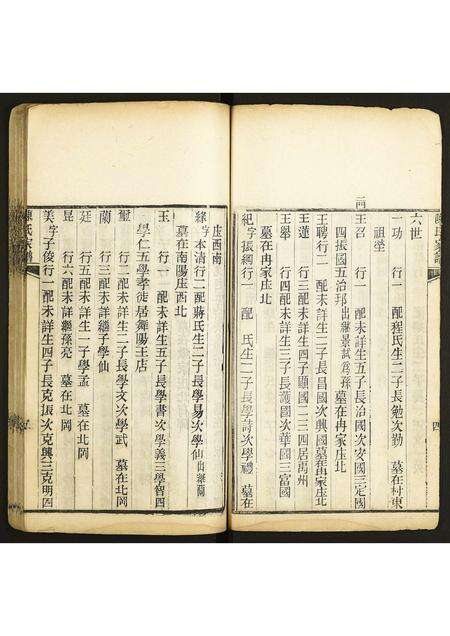 陳氏家譜
四
六世
一功 行一 配程氏生二子長勉次勤 墓在村東
祖塋
王召 行一 配未詳生五子長治國次安國三定國
四振國五治邦出繼景試為孫墓在冉家庄北
王聘 行二 配未詳生二子長昌國次興國墓在冉家庄北
王蓮 行三 配未詳生四子顯國二三四居禹州
王舉 行四 配未詳生三子長護國次華國三富國
墓在冉家庄北
紀 字振綱行一 配 氏生二子長學詩次學禮 墓在
庄西南
緣 字本清行二配蔣氏生二子長學易次學仙出繼蘭
墓在南陽庄西北
玉 行一 配未詳生五子長學書次學義三學智四
學仁五學孝徙居舞陽王店
璽 行二 配未詳生二子長學文次學武 墓在北岡
蘭 行三 配未詳繼子學仙
廷 行五 配未詳生一子學孟 墓在北岡
昆 行六 配未詳繼孫亮 墓在北岡
美 字子俊行一配未詳生四子長克振次克興三克明四
陳氏家譜